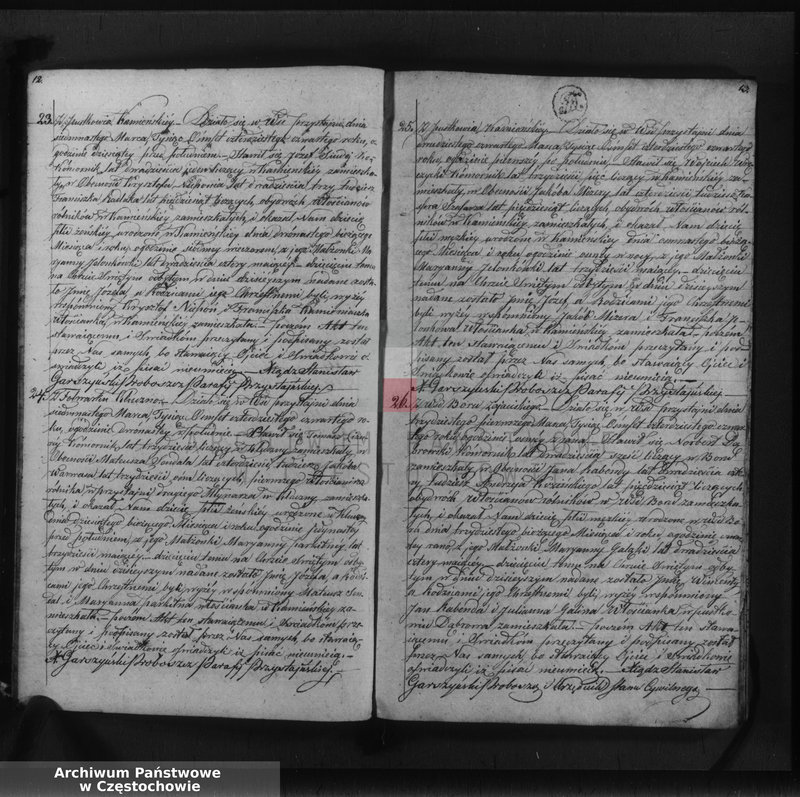 12.
23. Z Pustkowia Kamińskiej. Działo się w Wsi Przystajni dnia
siedmnastego Marca Tysiąc Ośmset czterdziestego czwartego roku, o
godzinie dziesiątej przed południem. Stawił się Józef
Komornik lat dwadzieścia liczący w Kamińskiej zamieszka-
ły, w Obecności Krzysztofa Nichonia lat dwadzieścia trzy tudzież
Franciszka lat pięćdziesiąt liczących, obydwóch włościanów
rolników w Kamińskiej zamieszkałych, i okazał Nam dziecię
płci żeńskiej urodzone w Kamińskiej dnia dwónastego bieżącego
Miesiąca i roku, ogodzinie siódmej wieczorem, z jego Małżonki Ma-
ryanny Jelonkónki lat dwadzieścia cztery mającej. dziecięciu temu
na Chrzcie Świętym odbytym, w dniu dzisiejszym nadane zosta-
ło Imię Józefa, a Rodzicami jego Chrzestnemi byli, wyżej
wspomniony Krzysztof Nichoń, i Franciszka Kamieniarska
włościanka, w Kamińskiej zamieszkała. poczem Akt ten
stawającemu, i Świadkom przeczytany i podpisany został
przez Nas samych, bo stawający Ojciec i Świadkowie o-
świadczyli iż pisać nieumieją. Xiądz Stanisław
Garszyński Proboszcz Parafij Przystajńskiej
24. Z Folwarku Kluczno. Działo się w Wsi Przystajni dnia
siedmnastego Marca Tysiąc Ośmset czterdziestego czwartego ro-
ku, ogodzinie dwónastej w południe. Stawił się Tomasz
Komornik lat trzydzieści liczący w Kluczny zamieszkały, w
Obecności Mateusza Sowala lat czterdzieści, tudzież Jakóba
Warwasa lat trzydzieści ośm liczących, pierwszego włościanina
rolnika w Przystajni drugiego Młynarza w Kluczny zamieszka-
łych, i okazał Nam dziecię płci żeńskiej urodzone w Klucz-
dnia dziesiątego bieżącego Miesiąca i roku, ogodzinie jedynastej
przed południem, z jego Małżonki Maryanny Parkitnej lat
trzydzieści mającej. dziecięciu temu na Chrzcie Świętym odby-
tym w dniu dzisiejszym nadane zostało Imię Józefa, a Rodzi-
cami jego Chrzestnemi byli, wyżej wspomniony Mateusz So-
i Maryanna Parkitna włościanka, w Kamińskiej za-
mieszkała. poczem Akt ten stawającemu i Świadkom prze-
czytany i podpisany został przez Nas samych, bo stawają-
cy Ojciec i Świadkowie oświadczyli iż pisać nieumieją.
X Garszyński Proboszcz Parafij Przystajńskiej
25. Z Pustkowia Kamińskiej. Działo się w Wsi Przystajni dnia
dwudziestego czwartego Marca Tysiąc Ośmset czterdziestego czwartego
roku, ogodzinie pierwszej po południu. Stawił się Wojciech
Komornik lat trzydzieści pięć liczący w Kamińskiej za-
mieszkały, w Obecności Jakóba Mizery lat czterdzieści, tudzież
lat pięćdziesiąt liczących, obydwóch włościanów rol-
ników w Kamińskiej zamieszkałych, i okazał Nam dziecię
płci męzkiej urodzone w Kamińskiej dnia
Miesiąca i roku ogodzinie w nocy, z jego Małżonki
Maryanny Jelonkónki lat trzydzieści mającej. dziecięciu
temu na Chrzcie Świętym odbytym w dniu dzisiejszym
nadane zostało Imię Józef, a Rodzicami jego Chrzestnemi
byli, wyżej wspomniony Jakób Mizera i Franciszka Je-
lonkowa włościanka, w Kamińskiej zamieszkała, poczem
Akt ten stawającemu i Świadkom przeczytany i pod-
pisany został przez Nas samych, bo stawający Ojciec i
Świadkowie oświadczyli iż pisać nieumieją.
X Garszyński Proboszcz Parafij Przystajńskiej
26. Z Wsi Boru Zajacińskiego. Działo się w Wsi Przystajni dnia
trzydziestego pierwszego Marca Tysiąc Ośmset czterdziestego czwar-
tego roku, ogodzinie z rana. Stawił się Norbert
Komornik lat dwadzieścia sześć liczący w Boru
zamieszkały, w Obecności Jana Kabendy lat dwadzieścia
tudzież Andrzeja lat pięćdziesiąt liczących
obydwóch włościanów rolników w Wsi Boru zamieszka-
łych, i okazał Nam dziecię płci męzkiej urodzone w Wsi Bo-
ru dnia trzydziestego bieżącego Miesiąca i roku, ogodzinie
rano z jego Małżonki Maryanny lat dwadzieścia
cztery mającej. dziecięciu temu na Chrzcie Świętym odby-
tym w dniu dzisiejszym nadane zostało Imię Wincenty,
a Rodzicami jego Chrzestnemi byli, wyżej wspomniony
Jan Kabenda i Julianna Galina włościanka w Pustko-
wiu Dąbrowa zamieszkała. poczem Akt ten stawa-
jącemu i Świadkom przeczytany i podpisany został
przez Nas samych, bo stawający Ojciec i Świadkowie
oświadczyli iż pisać nieumieją. Xiądz Stanisław
Garszyński Proboszcz i Urzędnik Stanu Cywilnego
Archiwum Państwowe
w Częstochowie